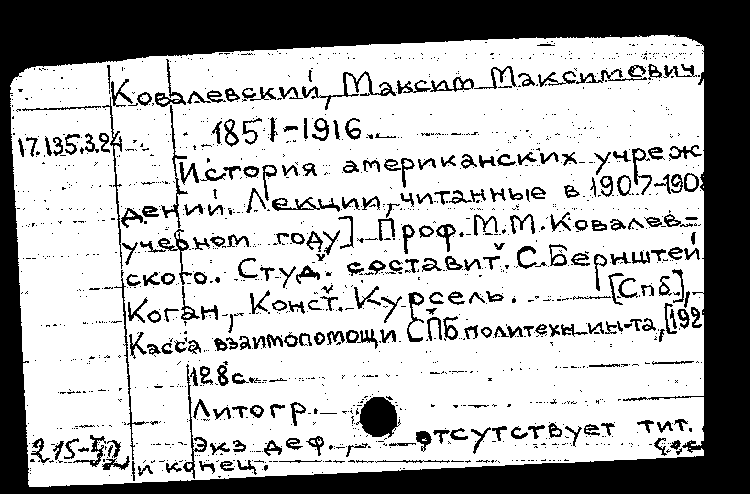 Ковалевский, Максим Максимович,
17.135.3.24
1851-1916.
[История американских учреж
дений. Лекции, читанные в 1907-1908
учебном году]. Проф. М.М. Ковалев-
ского. Студ. составит. С. Бернштей
Коган, Конст. Курсель. [Спб],
Касса взаимопомощи СПБ политехн. ин-та, [192
128 с.
Литогр.
Экз деф., отсутствует тит.
и конец.